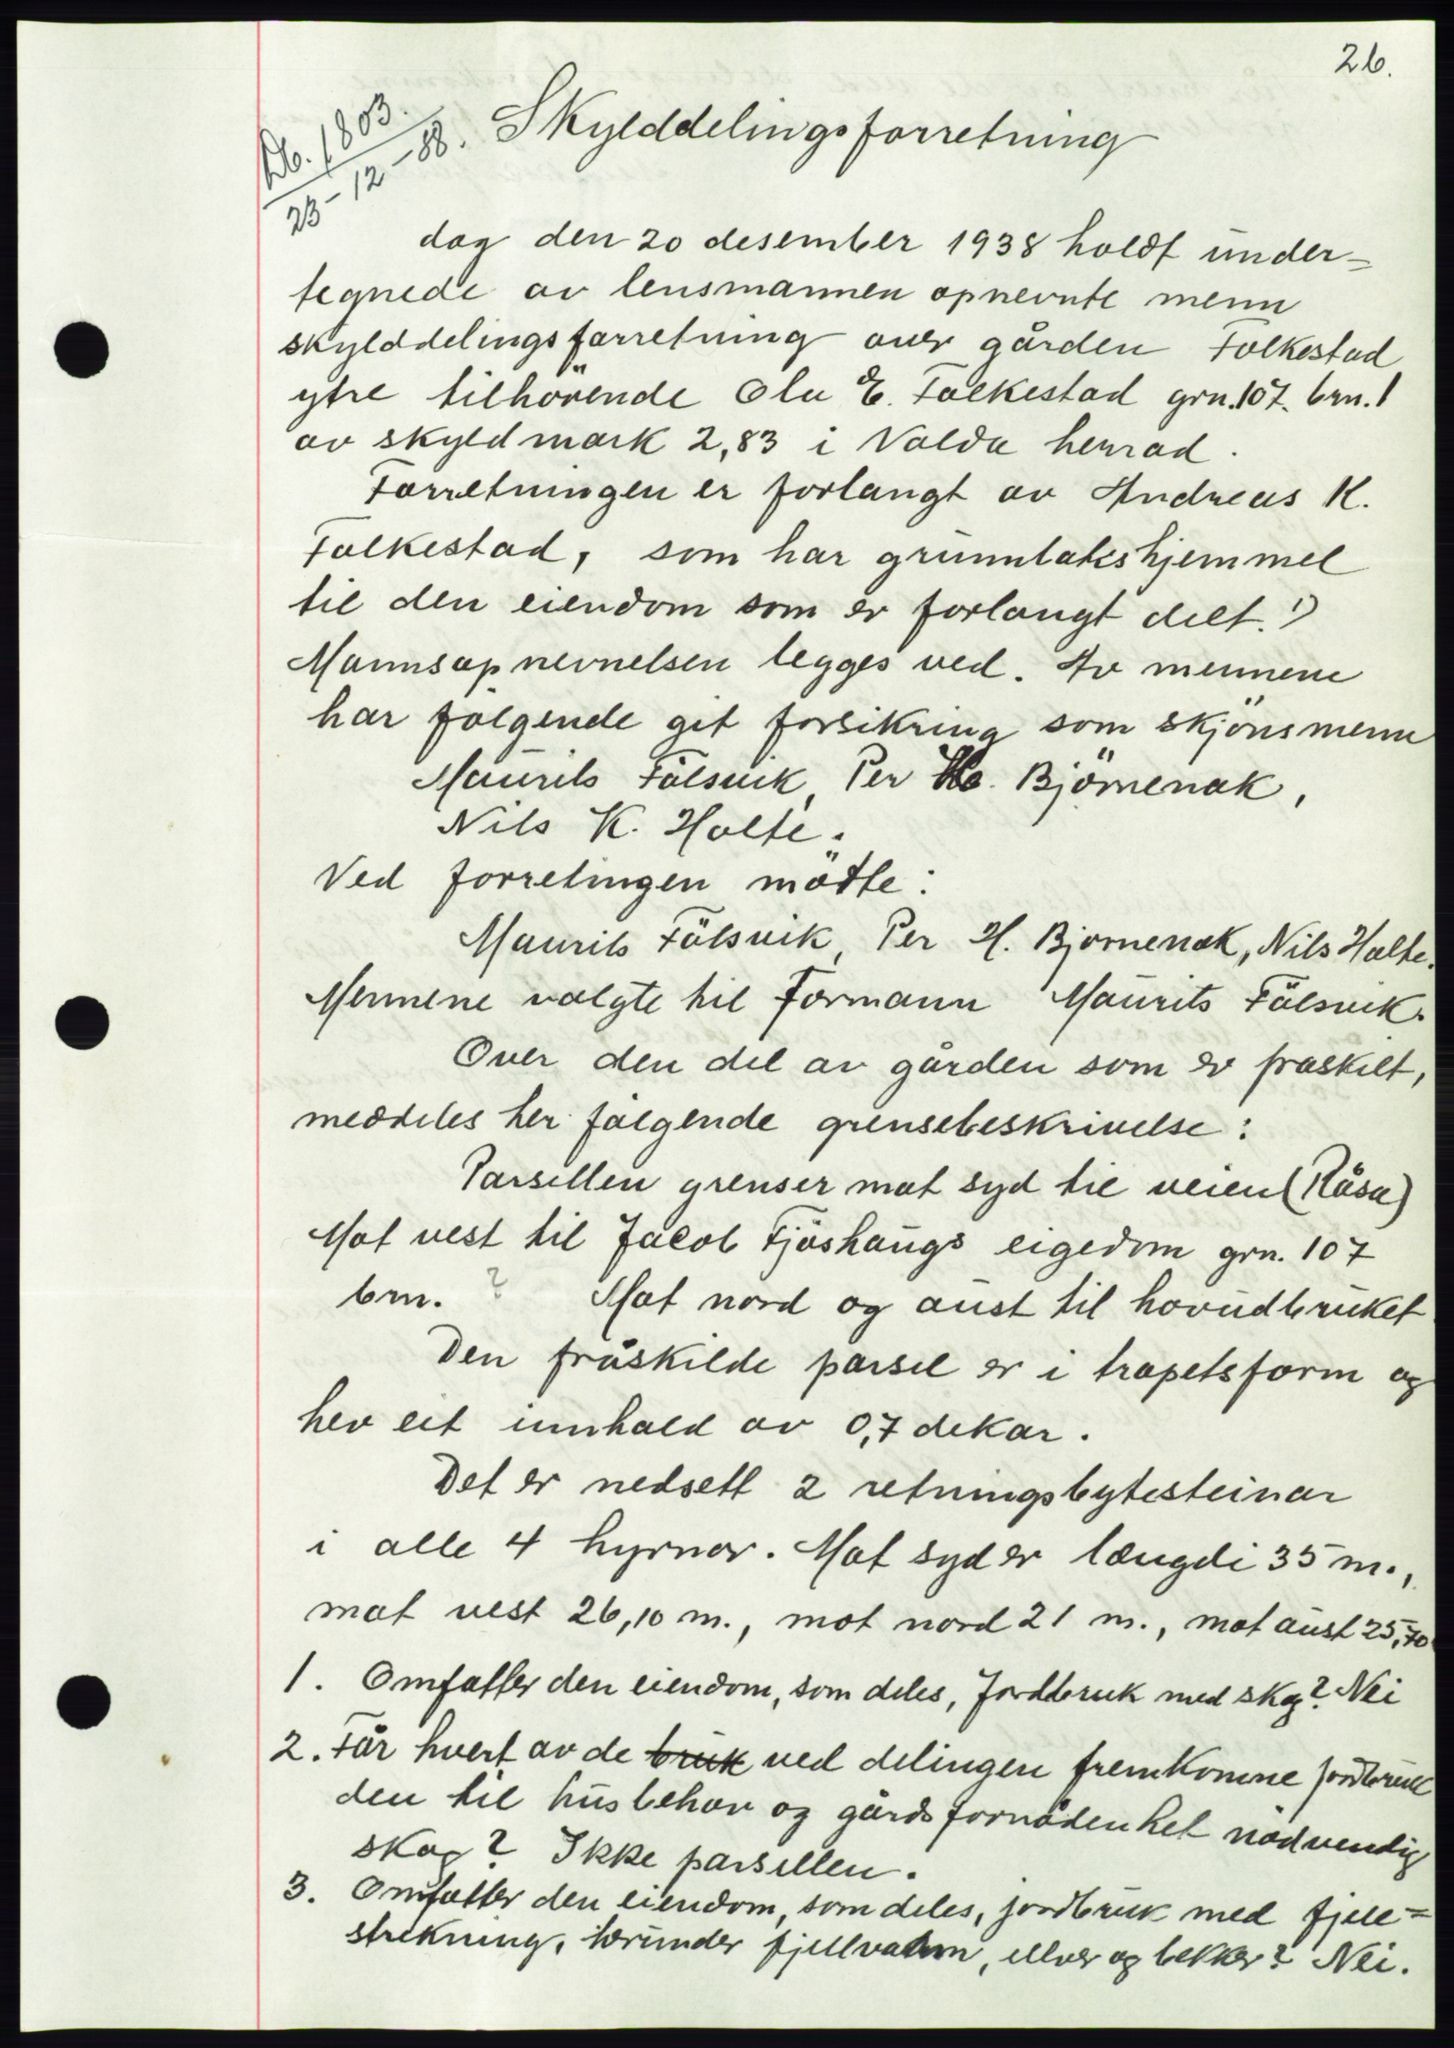 26.
Db. 1803.
23-12-88.
Skylddelingsforretning
dag den 20 desember 1938 holdt under=
tegnede av lensmannen opnevnte menn
skylddelingsforretning over gården Folkestad
ytre tilhörende Ola E. Folkestad grn. 107. brn. 1
av skyldmark 2,83 i Volda herrad.
Forretningen er forlangt av Andreas K.
Folkestad, som har grunnbokshjemmel
til den eiendom som er forlangt delt. 1)
Mannsopnevnelsen legges ved. Av mennene
har følgende git forsikring som skjönsmenn
Maurits Fölsvik, Per H. Björnenak,
Nils K. Holte.
Ved forretingen mötte:
Maurits Fölsvik, Per H. Bjornenak, Nils Holte.
Mennene valgte til Formann Maurits Fölsvik.
Over den del av gården som er fraskilt,
meddeles her følgende grensebeskrivelse:
Parsellen grenser mot syd til veien (Råsa)
Mot vest til Jacob Fjöshaugs eigedom grn. 107
brn. ? Mot nord og aust til hovudbruket
Den fråskilde parsel er i trapetsform og
hev eit innhald av 0,7 dekar.
Det er nedsett 2 retningsbytesteinar
i alle 4 hyrnor. Mot syd er længdi 35 m.,
mot vest 26,10 m., mot nord 21 m., mot aust 25,70
1. Omfatter den eiendom, som deles, Jordbruk med skog? Nei
2. Får hvert av de bruk ved delingen fremkomne jordbruk
den til husbehov og gårdsfornødenhet nødvendig
skog? Ikke parsellen.
3. Omfatter den eiendom, som deles, jordbruk med fjell=
strekning, herunder fjellvatn, elver og bekker? Nei.